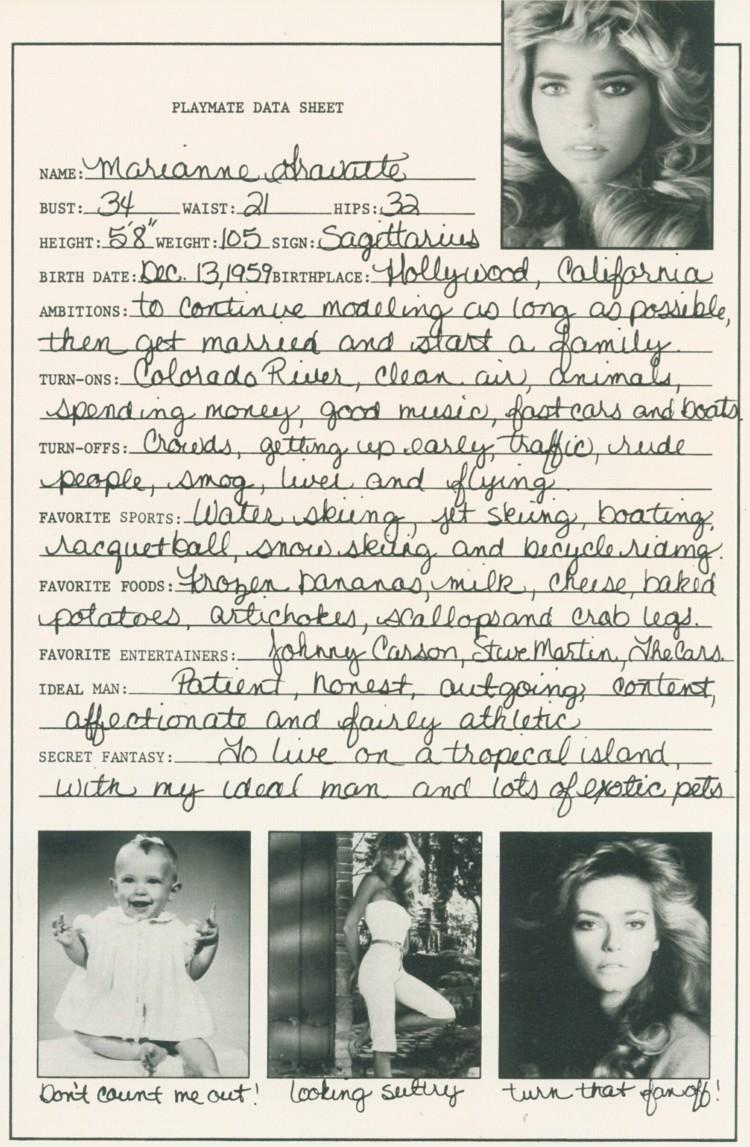 PLAYMATE DATA SHEET
NAME: Marianne Gravatte
BUST: 34 WAIST: 21 HIPS: 32
HEIGHT: 5'8" WEIGHT: 105 SIGN: Sagittarius
BIRTH DATE: Dec. 13, 1959 BIRTHPLACE: Hollywood, California
AMBITIONS: to continue modeling as long as possible,
then get married and start a family.
TURN-ONS: Colorado River, clean air, animals,
spending money, good music, fast cars and boats.
TURN-OFFS: Crowds, getting up early, traffic, rude
people, smog, liver and flying
FAVORITE SPORTS: Water skiing, jet skiing, boating,
racquetball, snow skiing and becycle riding.
FAVORITE FOODS: Frozen bananas, milk, cheese, baked
potatoes, artichokes, scallops and crab legs.
FAVORITE ENTERTAINERS: Johnny Carson, Steve Martin, The Cars.
IDEAL MAN: Patient, honest, outgoing, content,
affectionate and fairly athletic
SECRET FANTASY: To live on a tropical island,
with my ideal man and lots of exotic pets
Don't count me out! looking sultry turn that fan off!